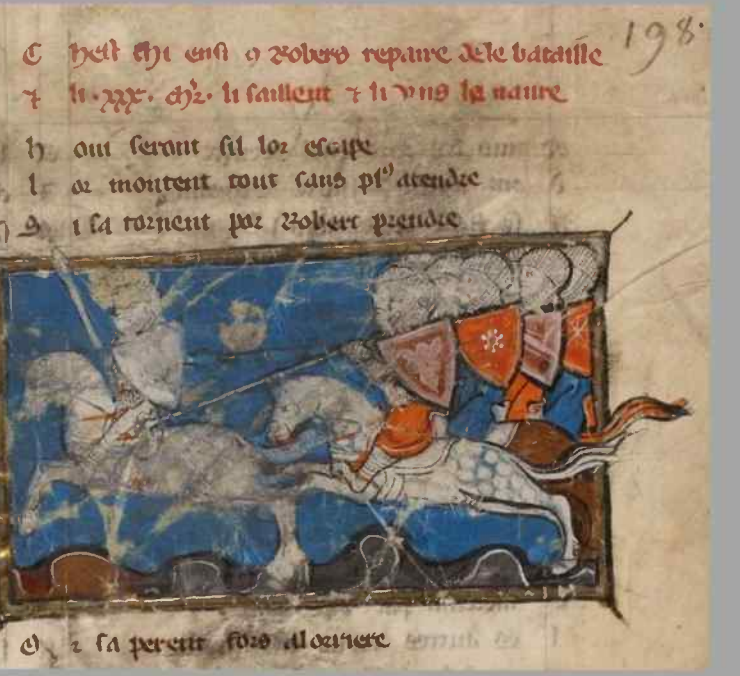 198.
C hest chi ensi 9 Robers repaire dele bataille
⁊ li .xxx. chꝛ. li saillent ⁊ li vns le naure
h oni seront sil lor escape
l or montent tout sans plꝰ atendre
s i sa tornent por Robert prendre
sa perent fors al orriere